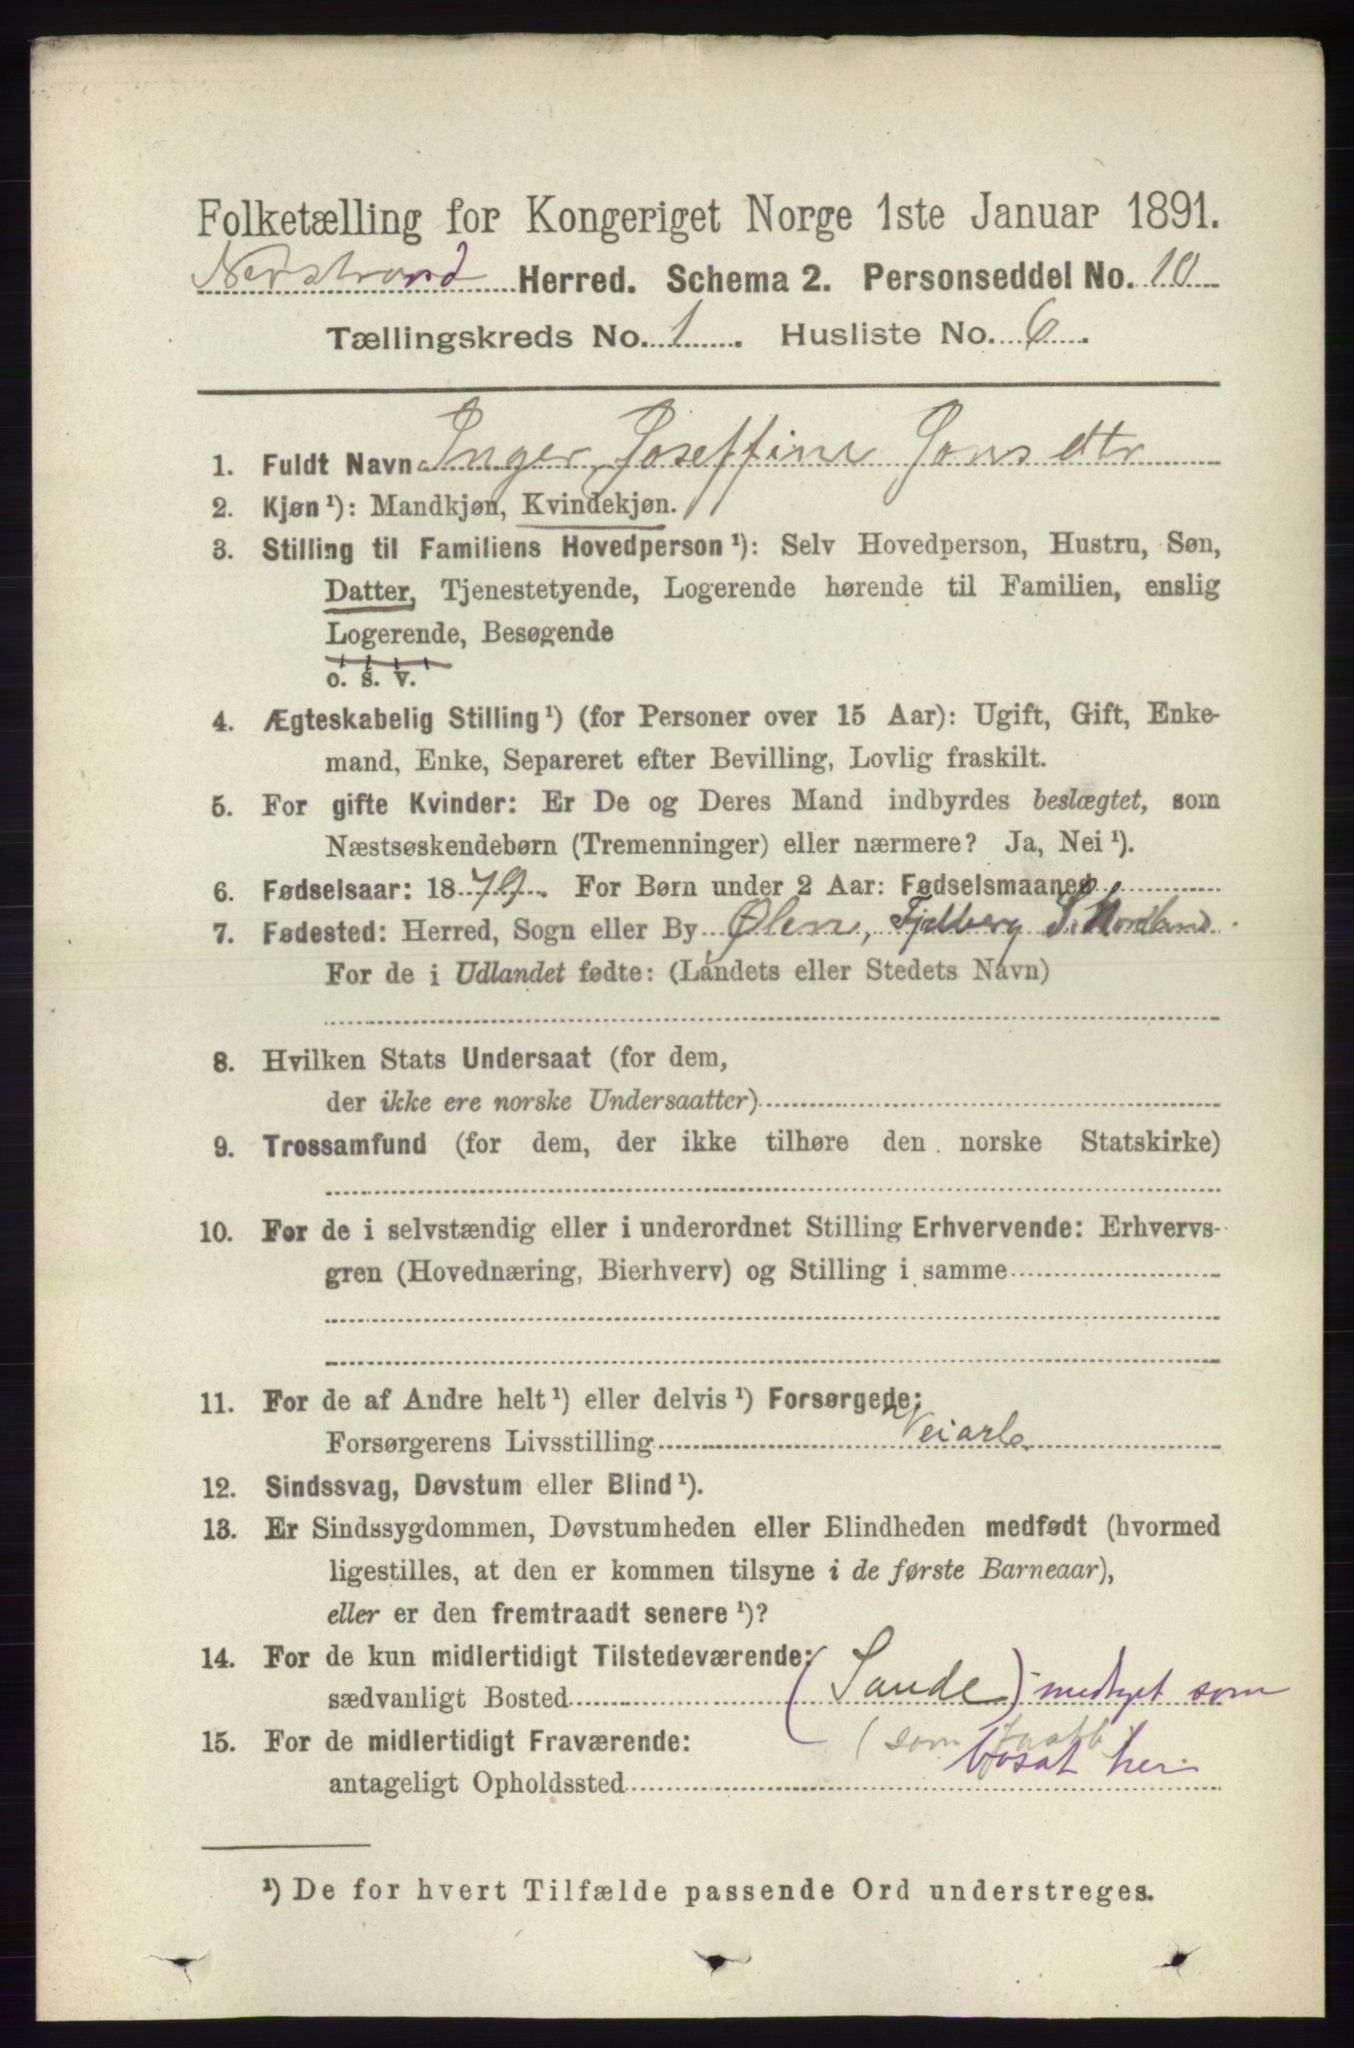 Folketælling for Kongeriget Norge 1ste Januar 1891.
Nedstrand Herred. Schema 2. Personseddel No. 10
Tællingskreds No. 1. Husliste No. 6.
1. Fuldt Navn Inger Joseffine Jonsdtr
2. Kjøn¹): Mandkjøn, Kvindekjøn.
3. Stilling til Familiens Hovedperson¹): Selv Hovedperson, Hustru, Søn,
Datter, Tjenestetyende, Logerende hørende til Familien, enslig
Logerende, Besøgende
o. s. v.
4. Ægteskabelig Stilling¹) (for Personer over 15 Aar): Ugift, Gift, Enke-
mand, Enke, Separeret efter Bevilling, Lovlig fraskilt.
5. For gifte Kvinder: Er De og Deres Mand indbyrdes beslægtet, som
Næstsøskendebørn (Tremenninger) eller nærmere? Ja, Nei¹).
6. Fødselsaar: 1879. For Børn under 2 Aar: Fødselsmaaned
7. Fødested: Herred, Sogn eller By Ølen, Fjelberg S. Hordland.
For de i Udlandet fødte: (Landets eller Stedets Navn)
8. Hvilken Stats Undersaat (for dem,
der ikke ere norske Undersaatter)
9. Trossamfund (for dem, der ikke tilhøre den norske Statskirke)
10. For de i selvstændig eller i underordnet Stilling Erhvervende: Erhvervs-
gren (Hovednæring, Bierhverv) og Stilling i samme
11. For de af Andre helt¹) eller delvis¹) Forsørgede:
Forsørgerens Livsstilling Veiarb.
12. Sindssvag, Døvstum eller Blind¹).
13. Er Sindssygdommen, Døvstumheden eller Blindheden medfødt (hvormed
ligestilles, at den er kommen tilsyne i de første Barneaar),
eller er den fremtraadt senere¹)?
14. For de kun midlertidigt Tilstedeværende:
sædvanligt Bosted (Sande) medtyet som
15. For de midlertidigt Fraværende: (som
bosat her
antageligt Opholdssted
¹) De for hvert Tilfælde passende Ord understreges.